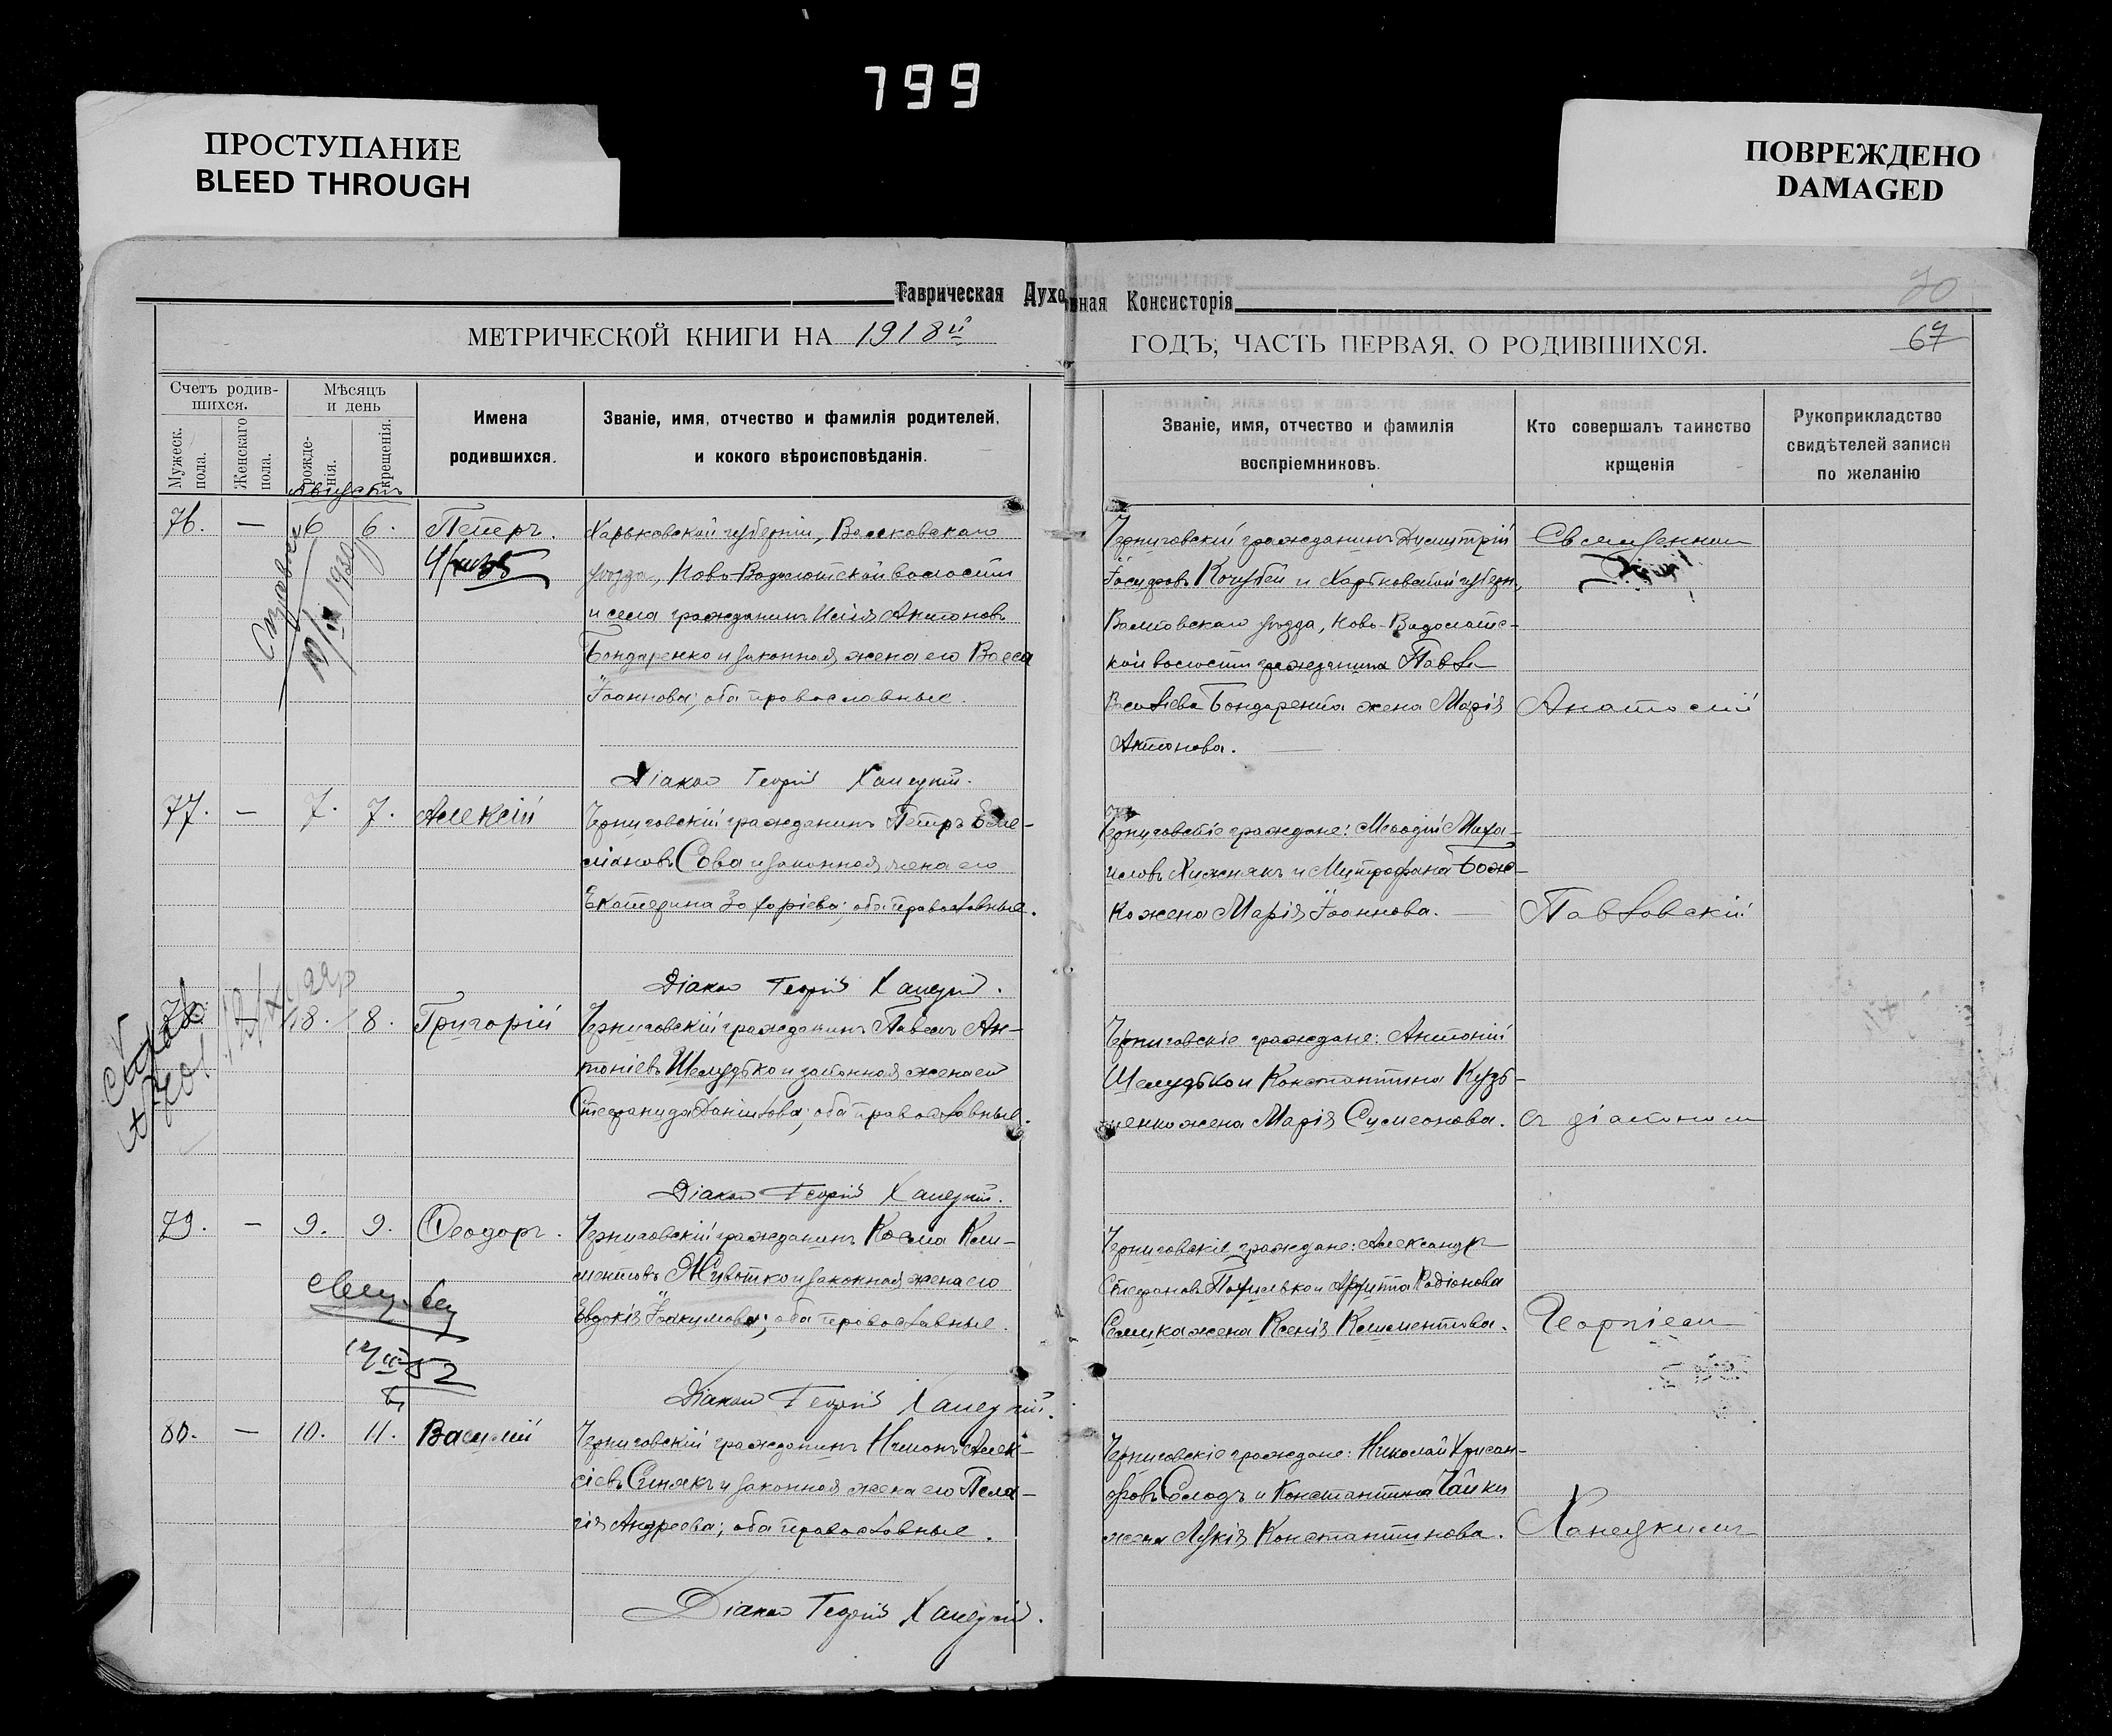 799
ПРОСТУПАНИЕ
BLEED THROUGH
ПОВРЕЖДЕНО
DAMAGED
Таврическая Духовная Консисторія
70
МЕТРИЧЕСКОЙ КНИГИ НА 1918й
ГОДЪ, ЧАСТЬ ПЕРВАЯ, О РОДИВШИХСЯ.
67
Счетъ родив-
шихся.
Мужеск. пола.
Женскаго пола.
Мѣсяцъ
и день
рожде-
нія.
крещенія.
Имена
родившихся.
Званіе, имя, отчество и фамилія родителей,
и кокого вѣроисповѣданія.
Званіе, имя, отчество и фамилія
воспріемниковъ.
Кто совершалъ таинство
крщенія
Рукоприкладство
свидѣтелей записи
по желанію
Августъ
76. — 6 6. Петръ.
Харьковской губерніи, Валковскаго
уѣзда, Ново-Водолажской волости
и села гражданинъ Илія Антоновъ
Бондаренко и законная жена его Васса
Іоаннова; оба православные.
Діакон Георгій Ханецкій.
Черниговскій гражданинъ Димитрій
Кочубей и Харьковской губерн,
Валковскаго уѣзда, Ново-Водолажс-
кой волости гражданина Павла
Васильева Бондаренка жена Марія
Антонова.
Священник
Анатолій
77. — 7. 7. Алексій
Черниговскій гражданинъ Петръ Еме-
ліановъ Сова и законная жена его
Екатерина Захаріева; оба православные.
Діакон Георгій Ханецкій.
Черниговскіе граждане: Меѳодій Миха-
иловъ Хижнякъ и Митрофана Бож-
ко жена Марія Іоаннова.
Павловскій
78. 8. 8. Григорій
Черниговскій гражданинъ Павелъ Ан-
тоніевъ Шелудько и законная жена его
Стефанида Данилова; оба православные.
Діакон Георгій Ханецкій.
Черниговскіе граждане: Антоній
Шелудько и Константина Кузь-
менко жена Марія Симеонова.
съ діаконом
79. — 9. 9. Ѳеодоръ.
Черниговскій гражданинъ Косма Кли-
ментовъ Животко и законная жена его
Евдокія Іоакимова; оба православные.
Діакон Георгій Ханецкій.
Черниговскіе граждане: Александръ
Стефановъ Родіонова
жена Ксенія Климентова.
Георгіем
52
80. — 10. 11. Василій
Черниговскій гражданинъ Алек-
сіевъ Синякъ и законная жена его Пела-
гія Андреева; оба православные.
Діакон Георгій Ханецкій.
Черниговскіе граждане: Николай Хрисан-
ѳовъ Солодъ и Константина Чайки
жена Лукія Константинова.
Ханецкимъ